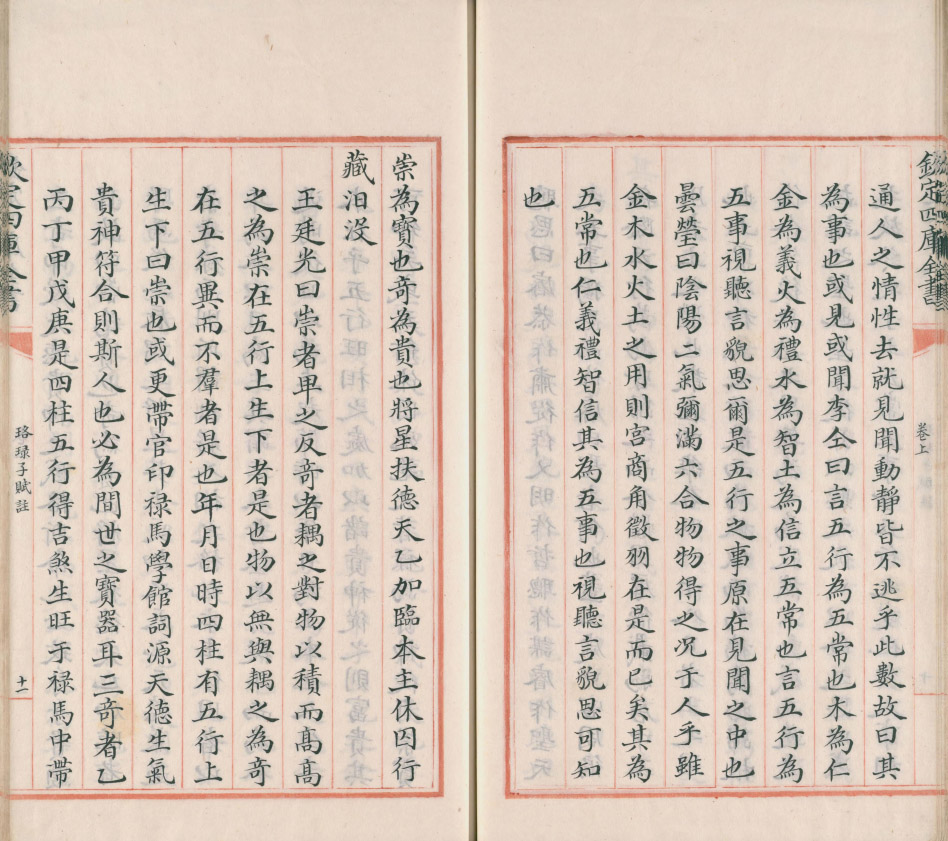 欽定四庫全書
卷上
通人之情性去就見聞動靜皆不逃乎此數故曰其
為事也或見或聞李仝曰言五行為五常也木為仁
金為義火為禮水為智土為信立五常也言五行為
五事視聽言貌思爾是五行之事原在見聞之中也
曇瑩曰陰陽二氣彌滿六合物物得之况于人乎雖
金木水火土之用則宫商角徵羽在是而已矣其為
五常也仁義禮智信其為五事也視聽言貌思可知
也
崇為寶也奇為貴也將星扶德天乙加臨本主休囚行
藏汩没
王廷光曰崇者卑之反奇者耦之對物以積而髙髙
之為崇在五行上生下者是也物以無與耦之為奇
在五行異而不羣者是也年月日時四柱有五行上
生下曰崇也或更帶官印禄馬學館詞源天德生氣
貴神符合則斯人也必為間世之寶器耳三奇者乙
丙丁甲戊庚是四柱五行得吉煞生旺于禄馬中帶
欽定四庫全書
珞琭子賦註
十一